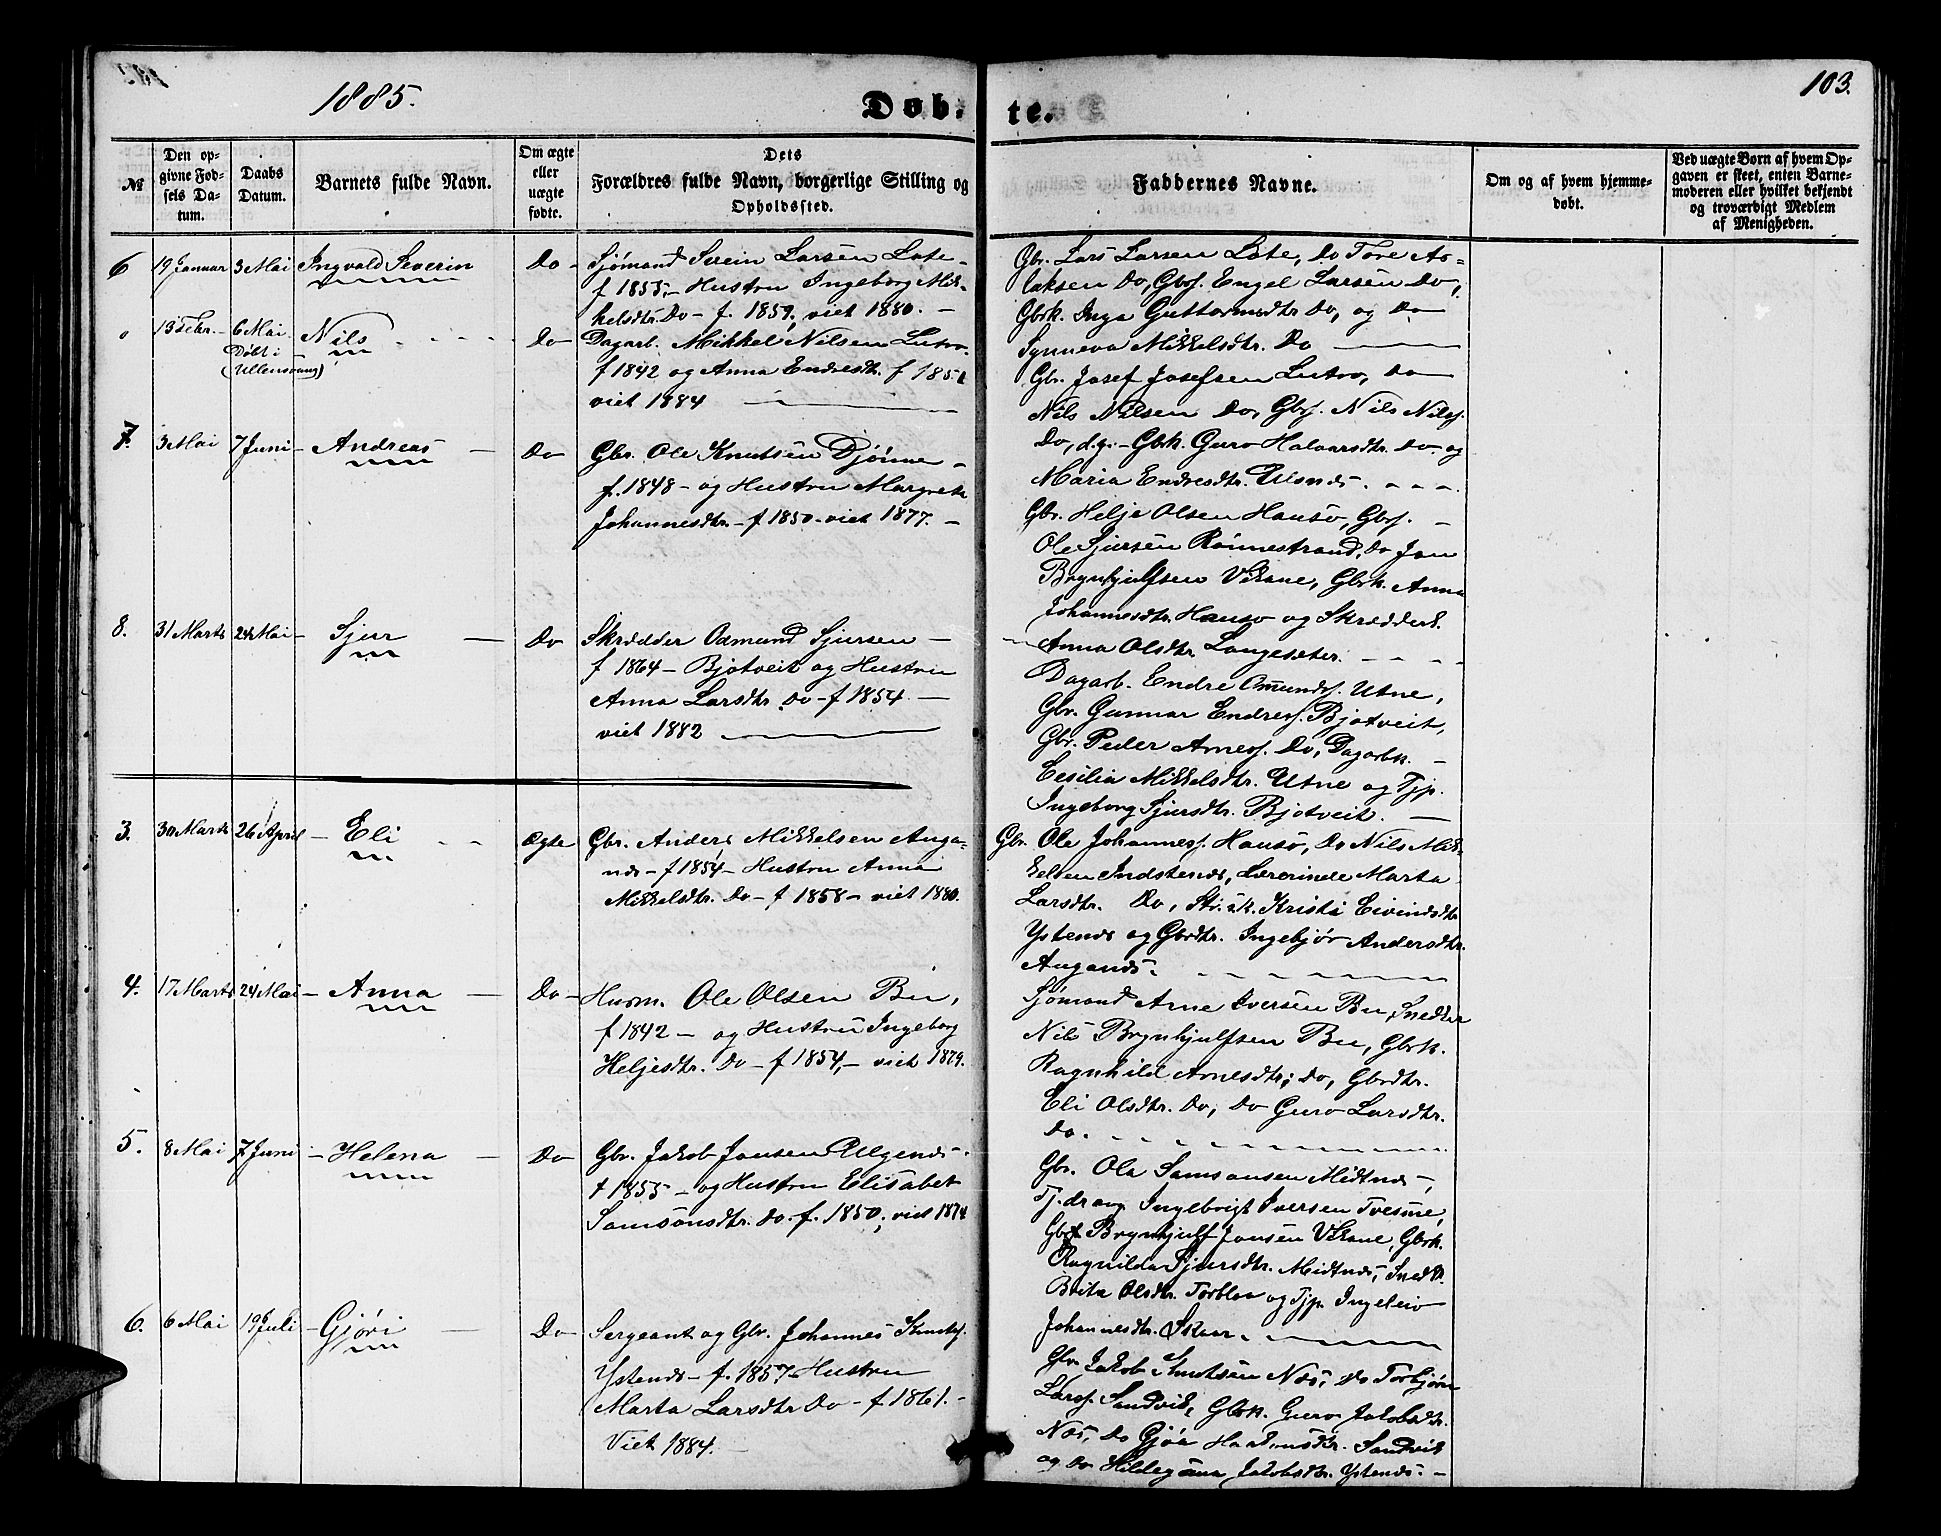 1885.
Døb-
te.
103.
№
Den op-
givne Fød-
sels Da-
tum.
Daabs
Datum.
Barnets fulde Navn.
Om ægte
eller
uægte
fødte.
Dets
Forældres fulde Navn, borgerlige Stilling og
Opholdssted.
Faddernes Navne.
Om og af hvem hjemme-
døbt.
Ved uægte Børn af hvem Op-
gaven er skeet, enten Barne-
moderen eller hvilket bekjendt
og troværdigt Medlem
af Menigheden.
6 19 Januar 3 Mai Ingvald Severin Do - Sjømand Svein Larsen Lote -
f 1855, - Hustru Ingeborg Mik-
kelsdtr. Do - f. 1859, viet 1880. -
Gbr. Lars Larsen Lote, Do Tore As-
laksen Do, Gbrs. Engel Larsen Do,
Gbrk. Inga Guttormsdtr Do, og Do
Synneva Mikkelsdtr. Do
13 Febr. 6 Mai Nils Do Dagarb. Mikkel Nilsen Lutro
Døbt i
(Ullensvang)
f 1842 og Anna Endresdtr. f 1851
viet 1884
Gbr. Josef Josefsen Lutro, Do
Nils Nilsen Do, Gbrs. Nils Nils.
Do, d.y. - Gbrk. Guro Halvarsdtr. Do og
Maria Endresdtr.
7. 3 Mai 7 Juni - Andreas - Do Gbr. Ole Knutsen Djønne -
f. 1848 - og Hustru Margreta
Johannesdtr - f 1850 - viet 1877. -
Gbr. Helje Olsen Hauso, Gbrs. -
Ole Sjursen Rønnestrand, Do Jon
Brynhjulfsen Vikane, Gbrk. Anna
Johannesdtr. Hauso og Skrædderk.
Anna Olsdtr. Langeseter.
8. 31 Marts 24 Mai - Sjur - Do Skrædder Odmund Sjursen -
f 1864 - Bjotveit og Hustru
Anna Larsdtr. Do - f 1854. -
viet 1882
Dagarb. Endre Omunds. Utne,
Gbr. Gunnar Endres. Bjotveit,
Gbr. Peder Arnes. Do, Dagarbk. -
Cesilia Mikkelsdtr. Utne og Tjp.
Ingeborg Sjursdtr. Bjotveit. -
3. 30 Marts 26 April - Eli ægte Gbr. Anders Mikkelsen Auga-
nds - f 1854 - Hustru Anna
Mikkelsdtr. Do - f 1858 - viet 1880.
Gbr. Ole Johannes. Hauso, Do Nils Mik-
kelsen Indstends, Lærerinde Marta
Larsdtr. Do, Kristi Eivindsdtr
Ystends og Gbrdtr. Ingebjør Andersdtr.
Augands.
4. 17 Marts 24 Mai - Anna - Do - Husm. Ole Olsen Bu,
f 1842 - og Hustru Ingeborg
Heljesdtr. Do - f 1854, - viet 1879.
Sjømand Arne Iversen Bu, Snedker
Nils Brynhjulfsen Bu, Gbrk.
Ragnhild Arnesdtr; Do, Gbrdtr.
Eli Olsdtr. Do, Do Guro Larsdtr.
Do.
5. 8 Mai 7 Juni - Helena - Do Gbr. Jakob Jonsen
f 1855 - og Hustru Elisabet
Samsonsdtr. Do. f. 1850, viet 1874
Gbr. Ola Samsonsen Midtnes,
Tj.dreng Ingebrigt Iversen Tvesme,
Brynhjulf Jonsen Vikane, Gbrk.
Ragnilda Sjursdtr. Midtnes,
Brita Olsdtr. Torbloa og Tjp. Ingeleiv
Johannesdtr. Skaar.
6. 6 Mai 19 Juli - Gjøri - Do - Sergeant og Gbr. Johannes Knuts.
Ystends - f. 1857 Hustru
Marta Larsdtr Do - f 1861. -
Viet 1884. -
Gbr. Jakob Knutsen Næs, Do Torbjørn
Lars. Sandvik, Gbrk. Guro Jakobsdtr.
Næs, Do Gjøa Haakonsdtr. Sandvik
og Do Hildegunna Jakobsdtr. Ystends. -